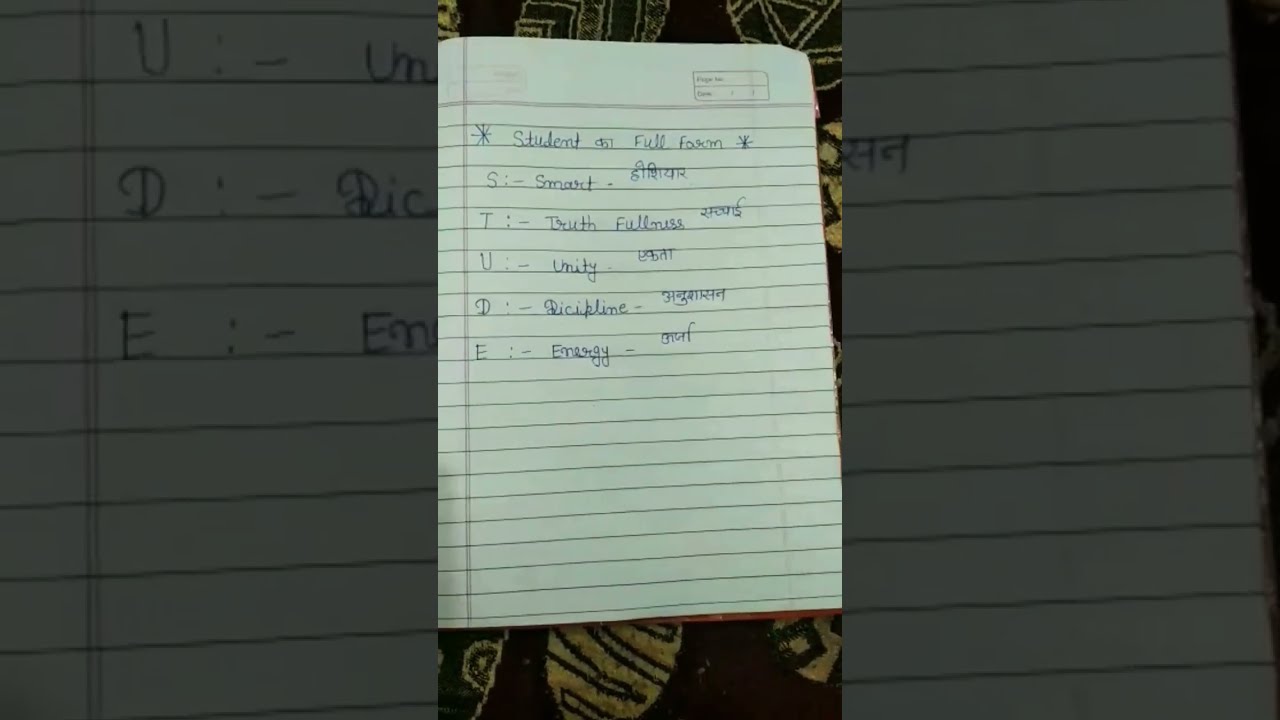 Page No.
Date: / /
* Student का Full Form *
S :- Smart - होशियार
T :- Truth Fullness सच्चाई
U :- Unity - एकता
D :- Dicipline - अनुशासन
E :- Energy - ऊर्जा